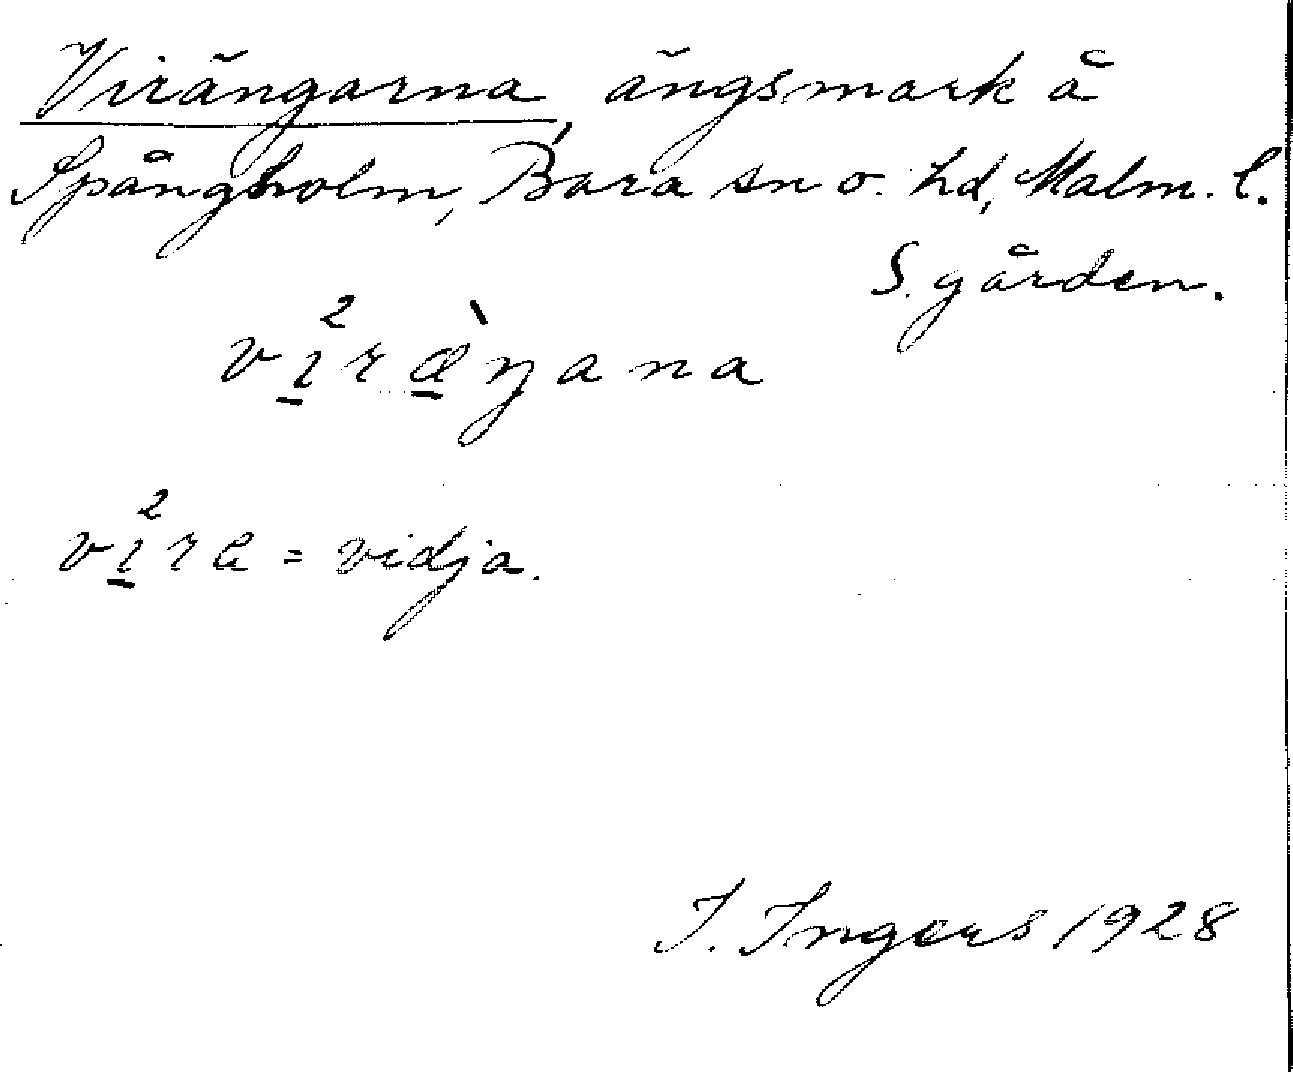 Virängarna, ängsmark å
Spångholm, Bara sn o. hd, Malm. l.
S. gården.
vı̱²ræ̱̀ŋana
vı̱²ra = vidja.
I. Ingers 1928